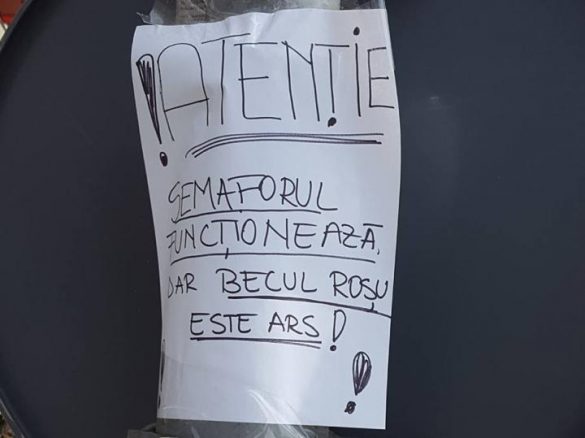 !ATENȚIE
SEMAFORUL
FUNCȚIONEAZĂ,
DAR BECUL ROȘU
ESTE ARS!
!